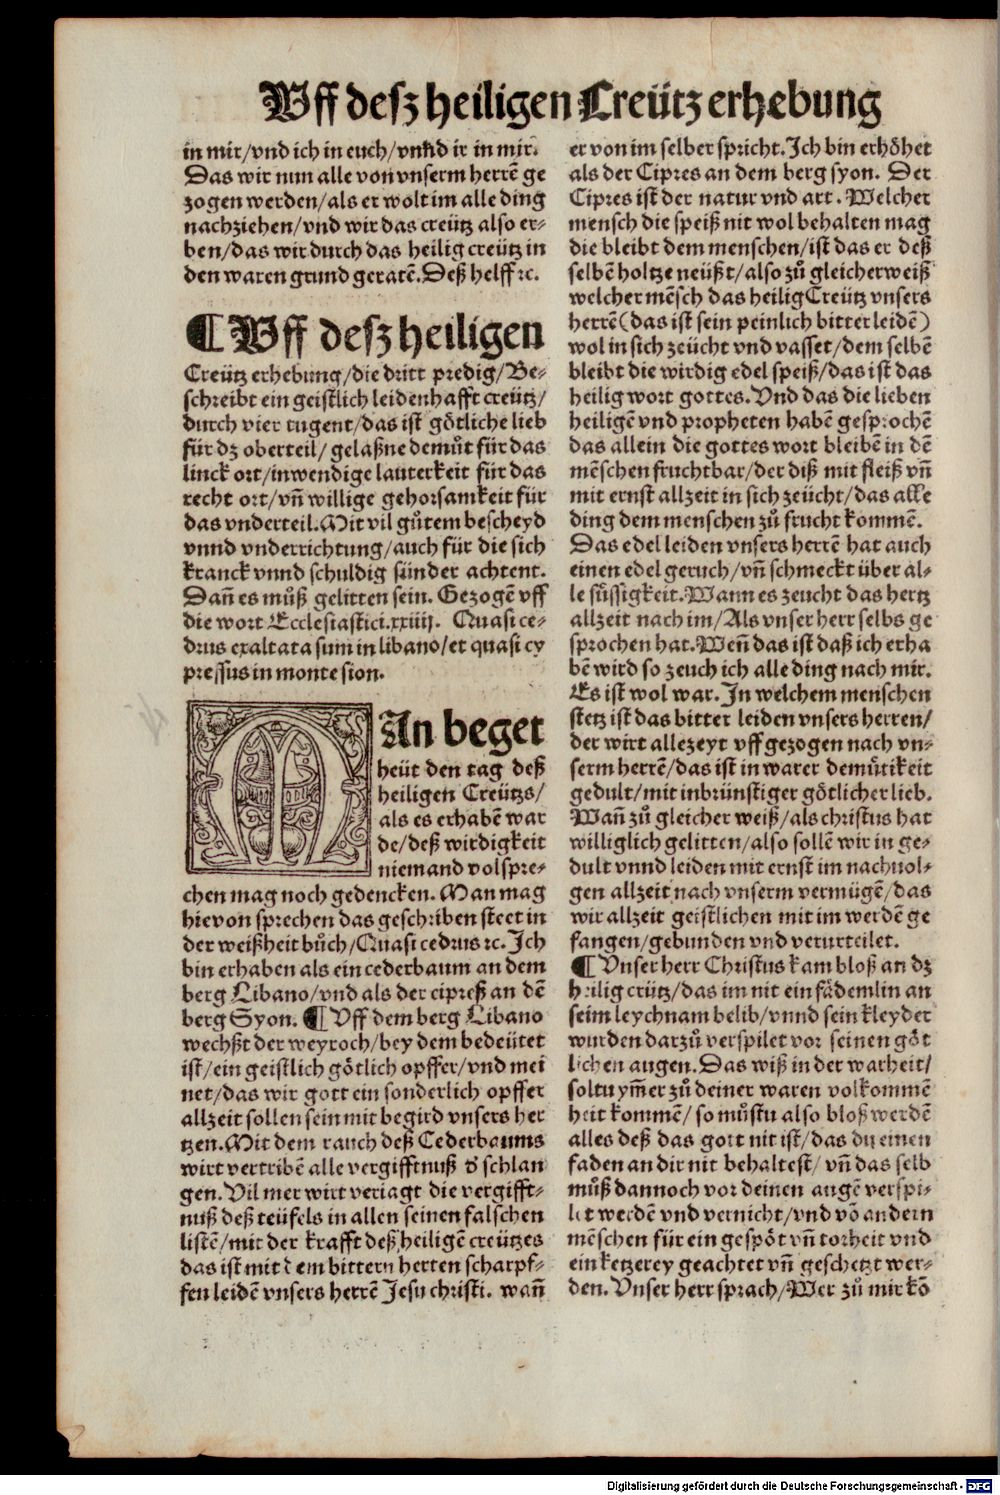 Uff desz heiligen Creütz erhebung
in mir/vnd ich in euch/vnnd ir in mir.
Das wir nun alle von vnserm herrē ge
zogen werden/als er wolt im alle ding
nachziehen/vnd wir das creütz also er-
ben/das wir durch das heilig creütz in
den waren grund geratē. Deß helff ꝛc.
¶ Uff desz heiligen
Creütz erhebung/die dritt predig/Be-
schreibt ein geistlich leidenhafft creütz/
durch vier tugent/das ist götliche lieb
für dz oberteil/ gelaßne demůt für das
linck ort/inwendige lauterkeit für das
recht ort/vñ willige gehorsamkeit für
das vnderteil. Mit vil gůtem bescheyd
vnnd vnderrichtung/auch für die sich
kranck vnnd schuldig sünder achtent.
Dañ es můß gelitten sein. Gezogē vff
die wort Ecclesiastici.xxiiij. Quasi ce-
drus exaltata sum in libano/et quasi cy
pressus in monte sion.
MAn beget
heüt den tag deß
heiligen Creützs/
als es erhabē war
de/deß wirdigkeit
niemand volspre-
chen mag noch gedencken. Man mag
hievon sprechen das geschriben steet in
der weißheit bůch/Quasi cedrus ꝛc. Ich
bin erhaben als ein cederbaum an dem
berg Libano/vnd als der cipreß an dē
berg Syon. ¶ Uff dem berg Libano
wechßt der weyroch/bey dem bedeütet
ist/ein geistlich götlich opffer/vnd mei
net/das wir gott ein sonderlich opffer
allzeit sollen sein mit begird vnsers her
tzen. Mit dem rauch deß Cederbaums
wirt vertribē alle vergifftnuß d' schlan
gen. Vil mer wirt veriagt die vergifft-
nuß deß teüfels in allen seinen falschen
listē/mit der krafft deß heiligē creützes
das ist mit dem bittern herten scharpf-
fen leidē vnsers herrē Jesu christi. wañ
er von im selber spricht. Ich bin erhöhet
als der Cipres an dem berg syon. Der
Cipres ist der natur vnd art. Welcher
mensch die speiß nit wol behalten mag
die bleibt dem menschen/ist das er deß
selbē holtze neüßt/also zů gleicher weiß
welcher mēsch das heilig Creütz vnsers
herrē (das ist sein peinlich bitter leidē)
wol in sich zeücht vnd vasset/dem selbē
bleibt die wirdig edel speiß/das ist das
heilig wort gottes. Und das die lieben
heiligē vnd propheten habē gesprochē
das allein die gottes wort bleibē in dē
mēschen fruchtbar/der diß mit fleiß vñ
mit ernst allzeit in sich zeücht/das alle
ding dem menschen zů frucht kommē.
Das edel leiden vnsers herrē hat auch
einen edel geruch/vñ schmeckt über al-
le süssigkeit. Wann es zeucht das hertz
allzeit nach im/Als vnser herr selbs ge
sprochen hat. Weñ das ist daß ich erha
bē wird so zeuch ich alle ding nach mir.
Es ist wol war. In welchem menschen
stetz ist das bitter leiden vnsers herren/
der wirt allezeyt vff gezogen nach vn-
serm herrē/das ist in warer demůtikeit
gedult/mit inbrünstiger götlicher lieb.
Wañ zů gleicher weiß/als christus hat
williglich gelitten/also sollē wir in ge-
dult vnnd leiden mit ernst im nachuol-
gen allzeit nach vnserm vermügē/das
wir allzeit geistlichen mit im werdē ge
fangen/gebunden vnd verurteilet.
¶ Unser herr Christus kam bloß an dz
heilig crütz/das im nit ein fädemlin an
seim leychnam belib/vnnd sein kleyder
wurden darzů verspilet vor seinen göt
lichen augen. Das wiß in der warheit/
soltu ym̄er zů deiner waren volkommē
heit kommē/ so můstu also bloß werdē
alles deß das gott nit ist/das du einen
faden an dir nit behaltest/ vñ das selb
můß dannoch vor deinen augē verspi-
let werdē vnd vernicht/vnd vō andern
mēschen für ein gespöt vñ torheit vnd
ein ketzerey geachtet vñ geschetzt wer-
den. Unser herr sprach/Wer zů mir kō
Digitalisierung gefördert durch die Deutsche Forschungsgemeinschaft - DFG